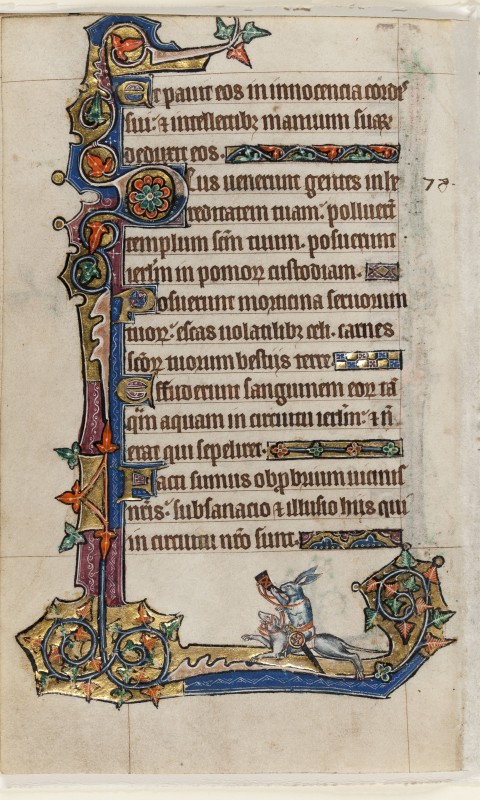 Et pauit eos in innocencia cordis
sui· ⁊ intellectibꝫ manuum suaꝝ
deduxit eos.
Deus uenerunt gentes in he
78.
reditatem tuam: polluerūt
templum scm̄ tuum. posuerunt
ierlm̄ in pomoꝝ custodiam.
Posuerunt morticina seruorum
tuoꝝ: escas uolatilibꝫ celi. carnes
scōꝝ tuorum bestijs terre
Effuderunt sanguinem eoꝝ tā
qm̄ aquam in circuitu ierlm̄: ⁊ n̄
erat qui sepeliret.
Facti sumus obp̱brium uicinis
nr̄is: subsanacio ⁊ illusio hiis qui
in circuitu nr̄o sunt.